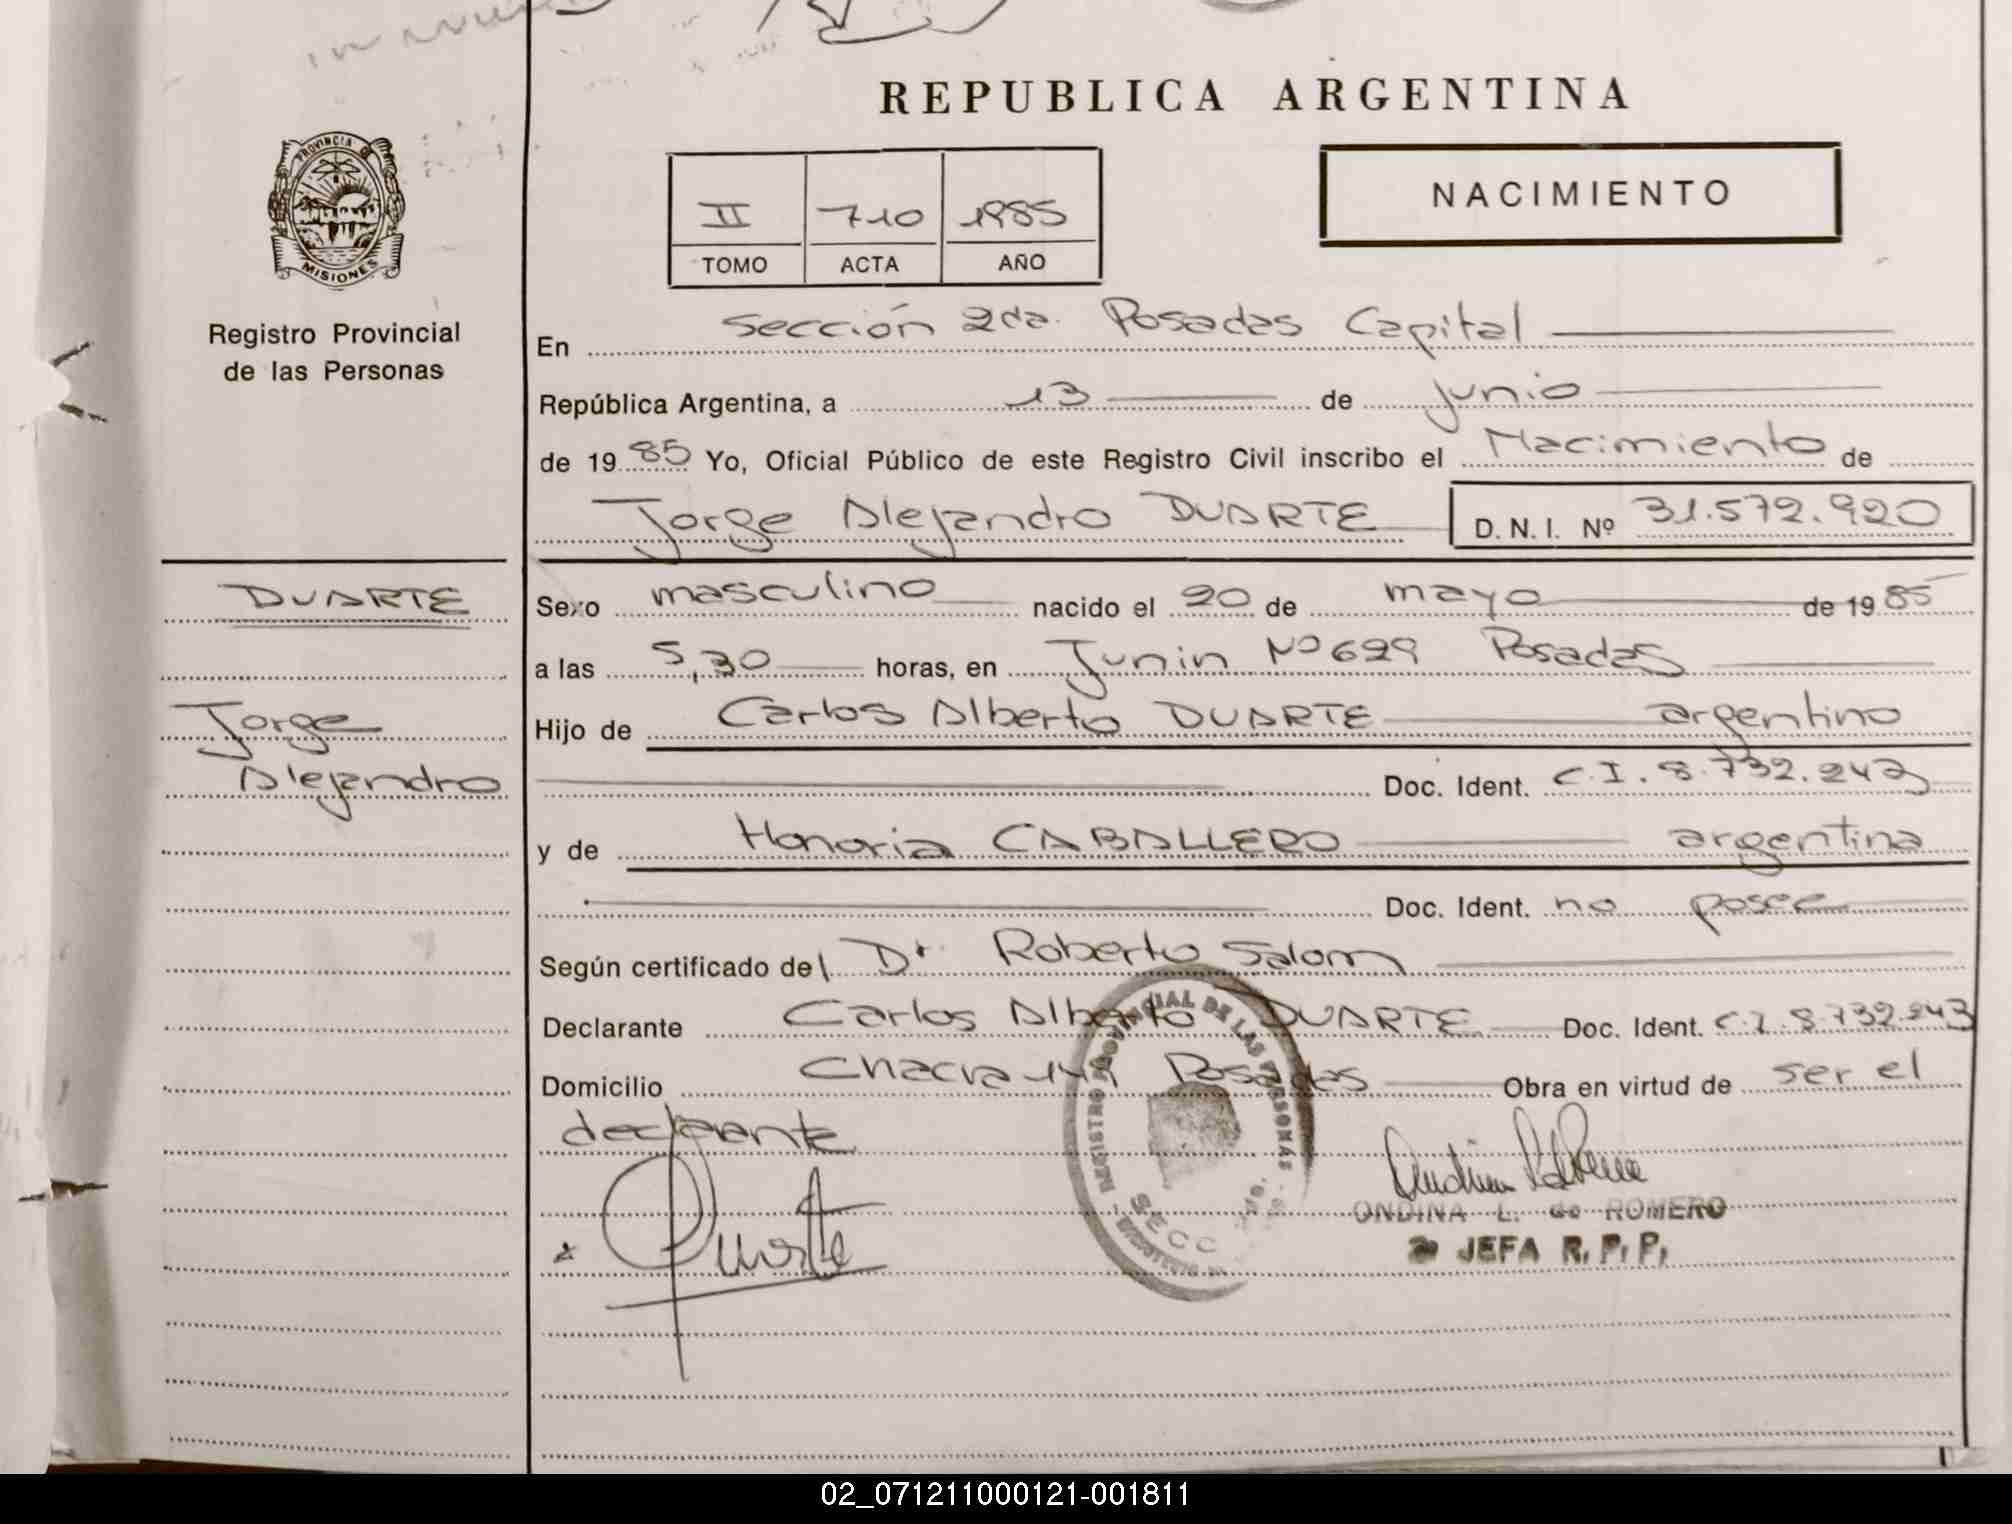 REPUBLICA ARGENTINA
PROVINCIA DE MISIONES
Registro Provincial
de las Personas
NACIMIENTO
II 710 1985
TOMO ACTA AÑO
En Sección 2da. Posadas Capital
República Argentina, a 13 de junio
de 1985 Yo, Oficial Público de este Registro Civil inscribo el Nacimiento de
Jorge Alejandro DUARTE D. N. I. Nº 31.572.920
DUARTE
Jorge
Alejandro
Sexo masculino nacido el 20 de mayo de 1985
a las 5,30 horas, en Junin Nº 629 Posadas
Hijo de Carlos Alberto DUARTE argentino
Doc. Ident. C.I. 8.732.243
y de Honoria CABALLERO argentina
Doc. Ident. no posee
Según certificado del Dr. Roberto Salom
Declarante Carlos Alberto DUARTE Doc. Ident. C.I. 8.732.243
Domicilio Chacra Posadas Obra en virtud de ser el
declarante
REGISTRO PROVINCIAL DE LAS PERSONAS
SECC
x Duarte
ONDINA L. de ROMERO
JEFA R. P. P.
02_071211000121-001811